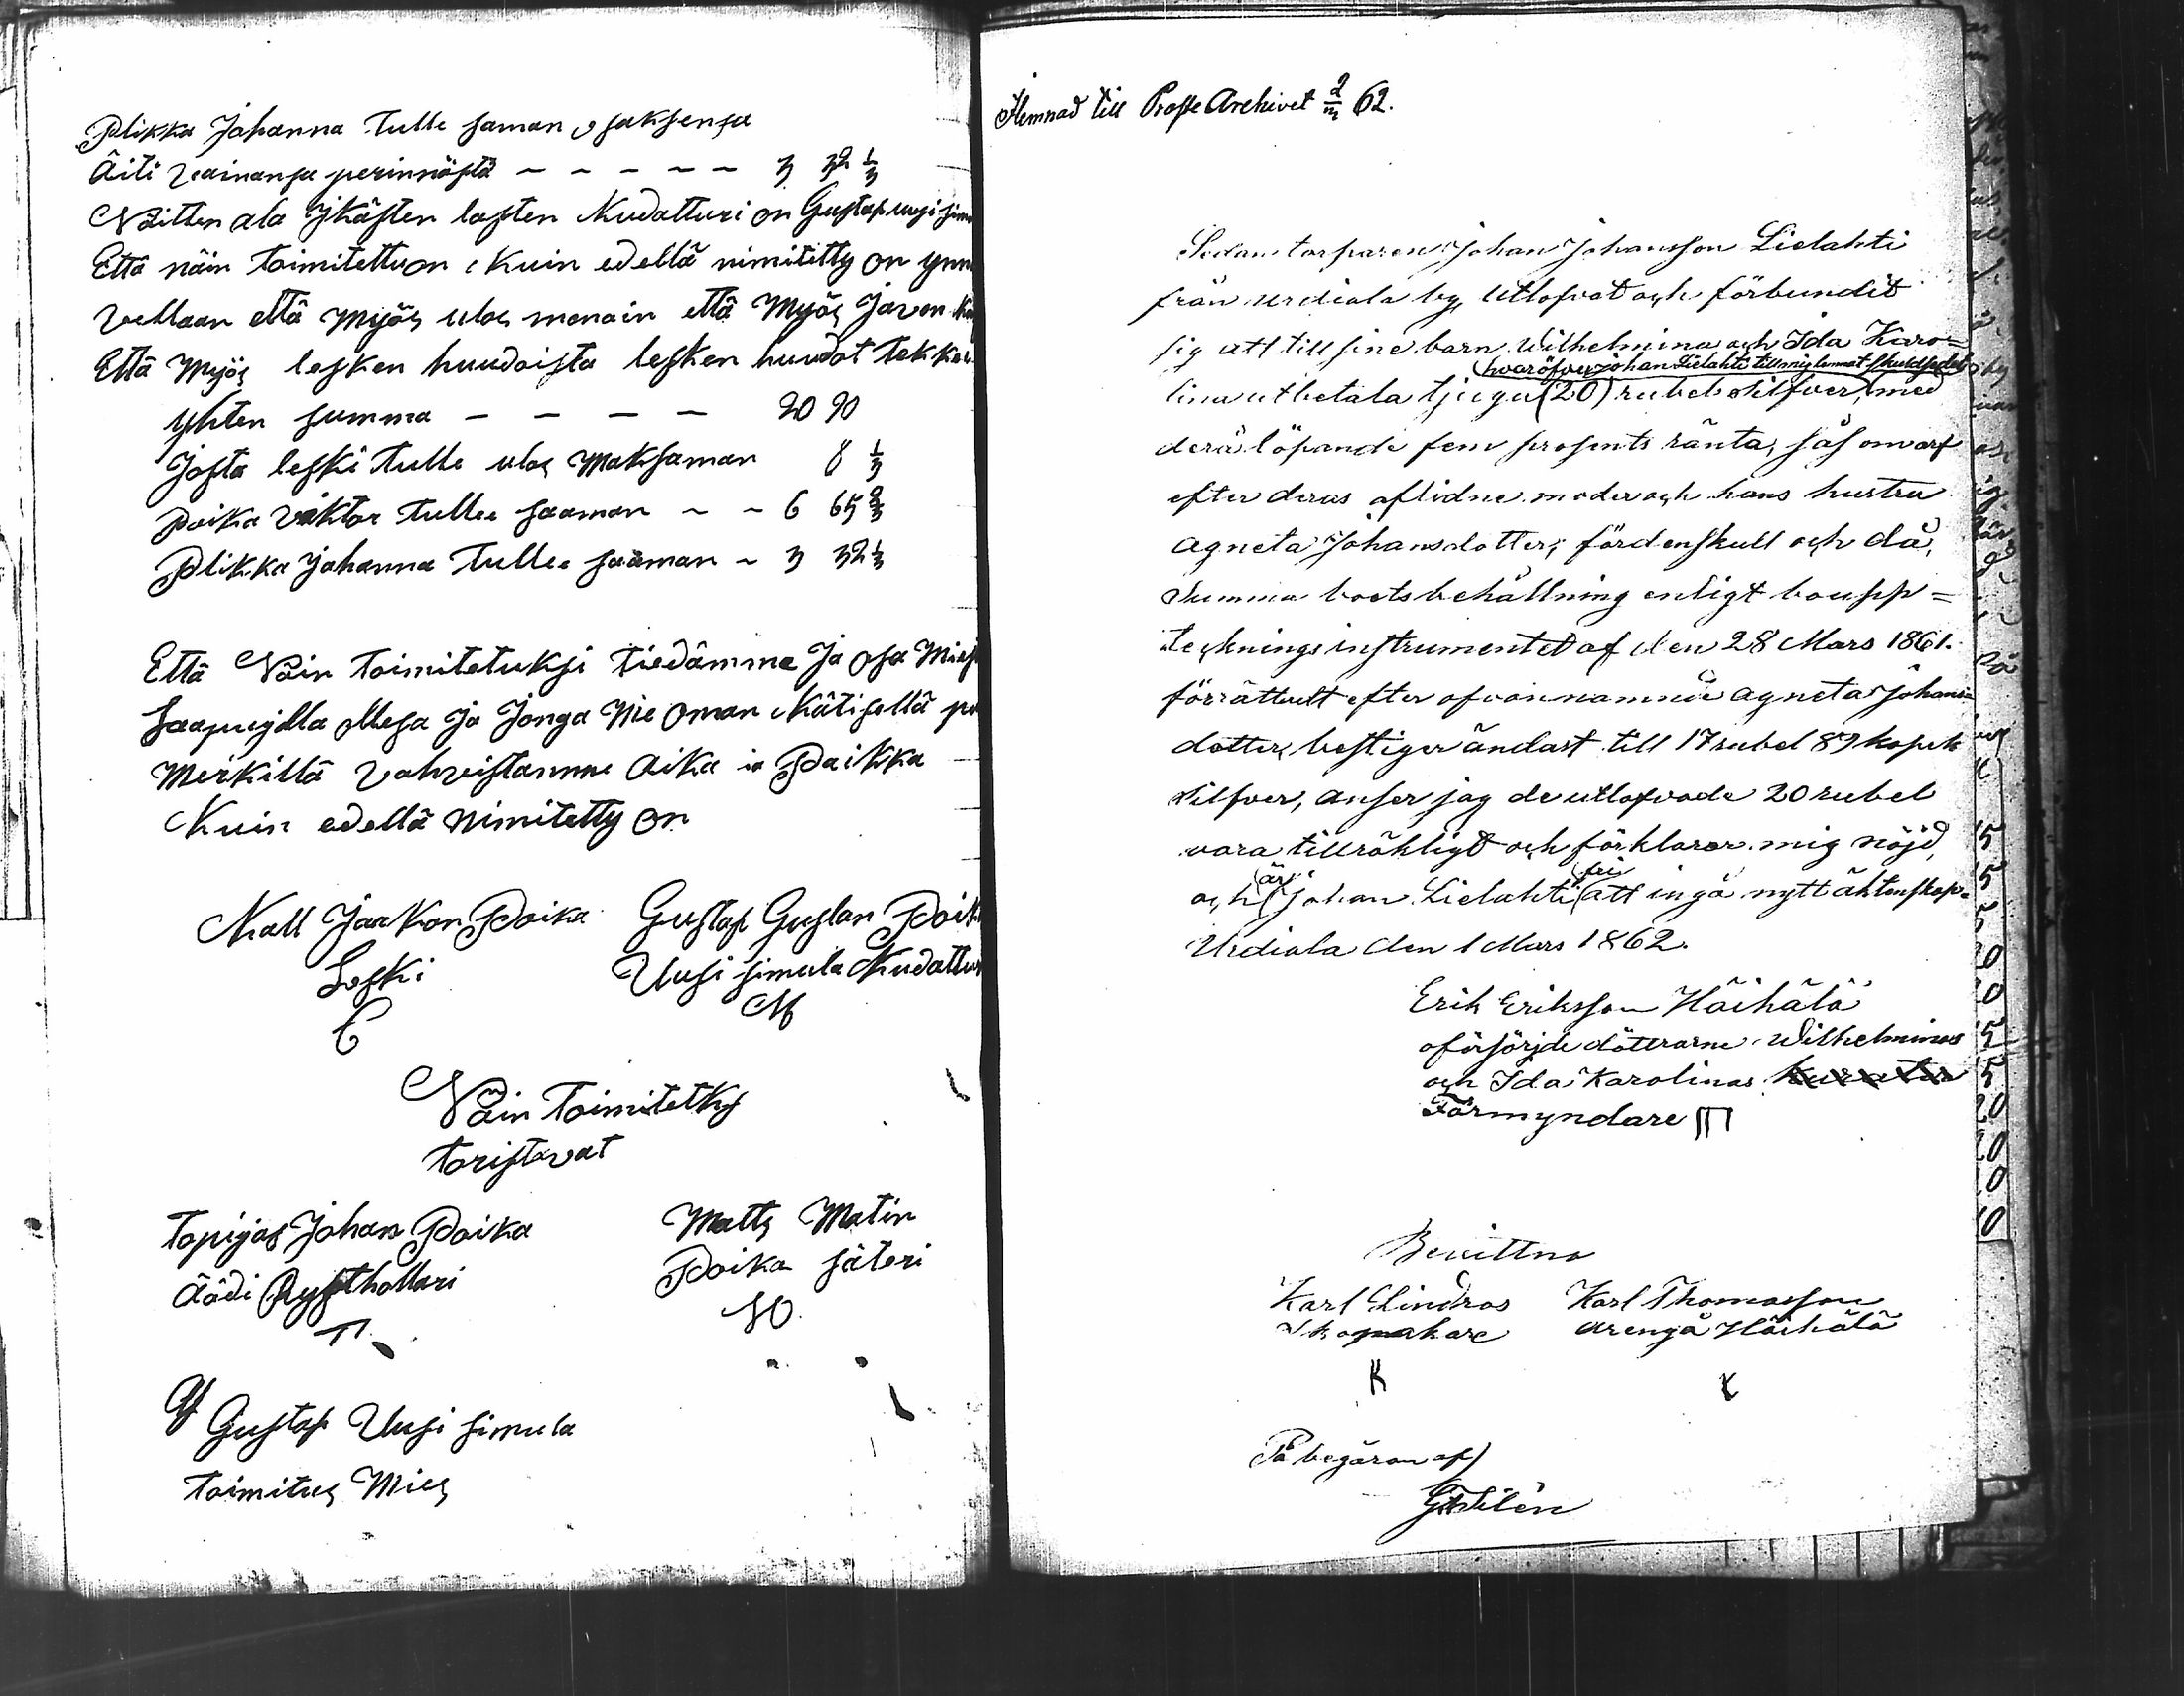 Plikka Johanna Tulle saman osaksensa
Äiti vainansa perinnöstä – – – – – 3 32 1/3
Näitten ala Jkästen lasten Kudatturi on Gustaf uusi sim
Että näin toimitettu on Kuin edellä nimitetty on ynn
vellaan että Myös ulos menoin että Myös Javon
Että Myös lesken huudoista lesken huudot tekke
yhten summa – – – – 20 20
Josta leski tulle ulos Maksaman 8 1/3
Poika Viktor tullee saaman – – 6 65 2/3
Plikka Johanna Tullee saaman – 3 32 1/3
Että Näin toimitetuksi tiedämme Ja osa Mies
Saapujilla ollesa Ja Jonga Me oman Kätisellä pu
Merkillä vahvistamme Aika ja Paikka
Kuin edellä nimitetty on
Matt Jaakon Poika Gustaf Gustan Poik
Leski Uusi simula Kudattur
Näin Toimitetksi
toristavat
Topijas Johan Poika Matts Matin
Äädi Rysthollari Poika säteri
Gustaf Uusi simula
toimitus Mies
Hemnad till Prosts Archivet 2/3 62.
Sedan torparen Johan Johansson Lielahti
från Urdiala by, utlofvat och förbundit
sig att till sine barn Wilhelmina och Ida Karo=
hvaröfver Johan Lielahti till mig lemnat skuldsedel
lina utbetala tjugu (20) rubel silfver, med
derå löpande fem prosents ränta, såsom arf
efter deras aflidne moder och hans hustru
Agneta Johansdotter; fördenskull och då,
Summa boets behållning enligt boupp=
teckningsinstrumentet af den 28 Mars 1861.
förrättadt efter ofvannämnde Agneta Johans=
dotter, bestiger ändast till 17 rubel 89 kopek
silfver, anser jag de utlofvade 20 rubel
vara tillräkligt och förklarar mig nöjd,
är fri
och Johan Lielahti att ingå nytt äktenskap.
Urdiala den 1 Mars 1862.
Erik Eriksson Häihälä
oförsörjde döttrarne Wilhelminas
och Ida Karolinas kurator
Förmyndare
Bevittna
Karl Lindros Karl Thomasson
Skomakare drengå Häihälä
K
På begäran af